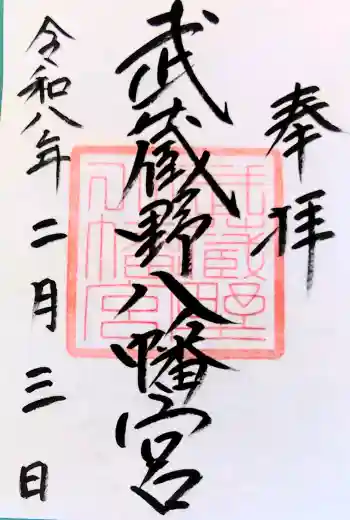 奉拝
武蔵野八幡宮
令和八年二月三日
武蔵野八幡宮